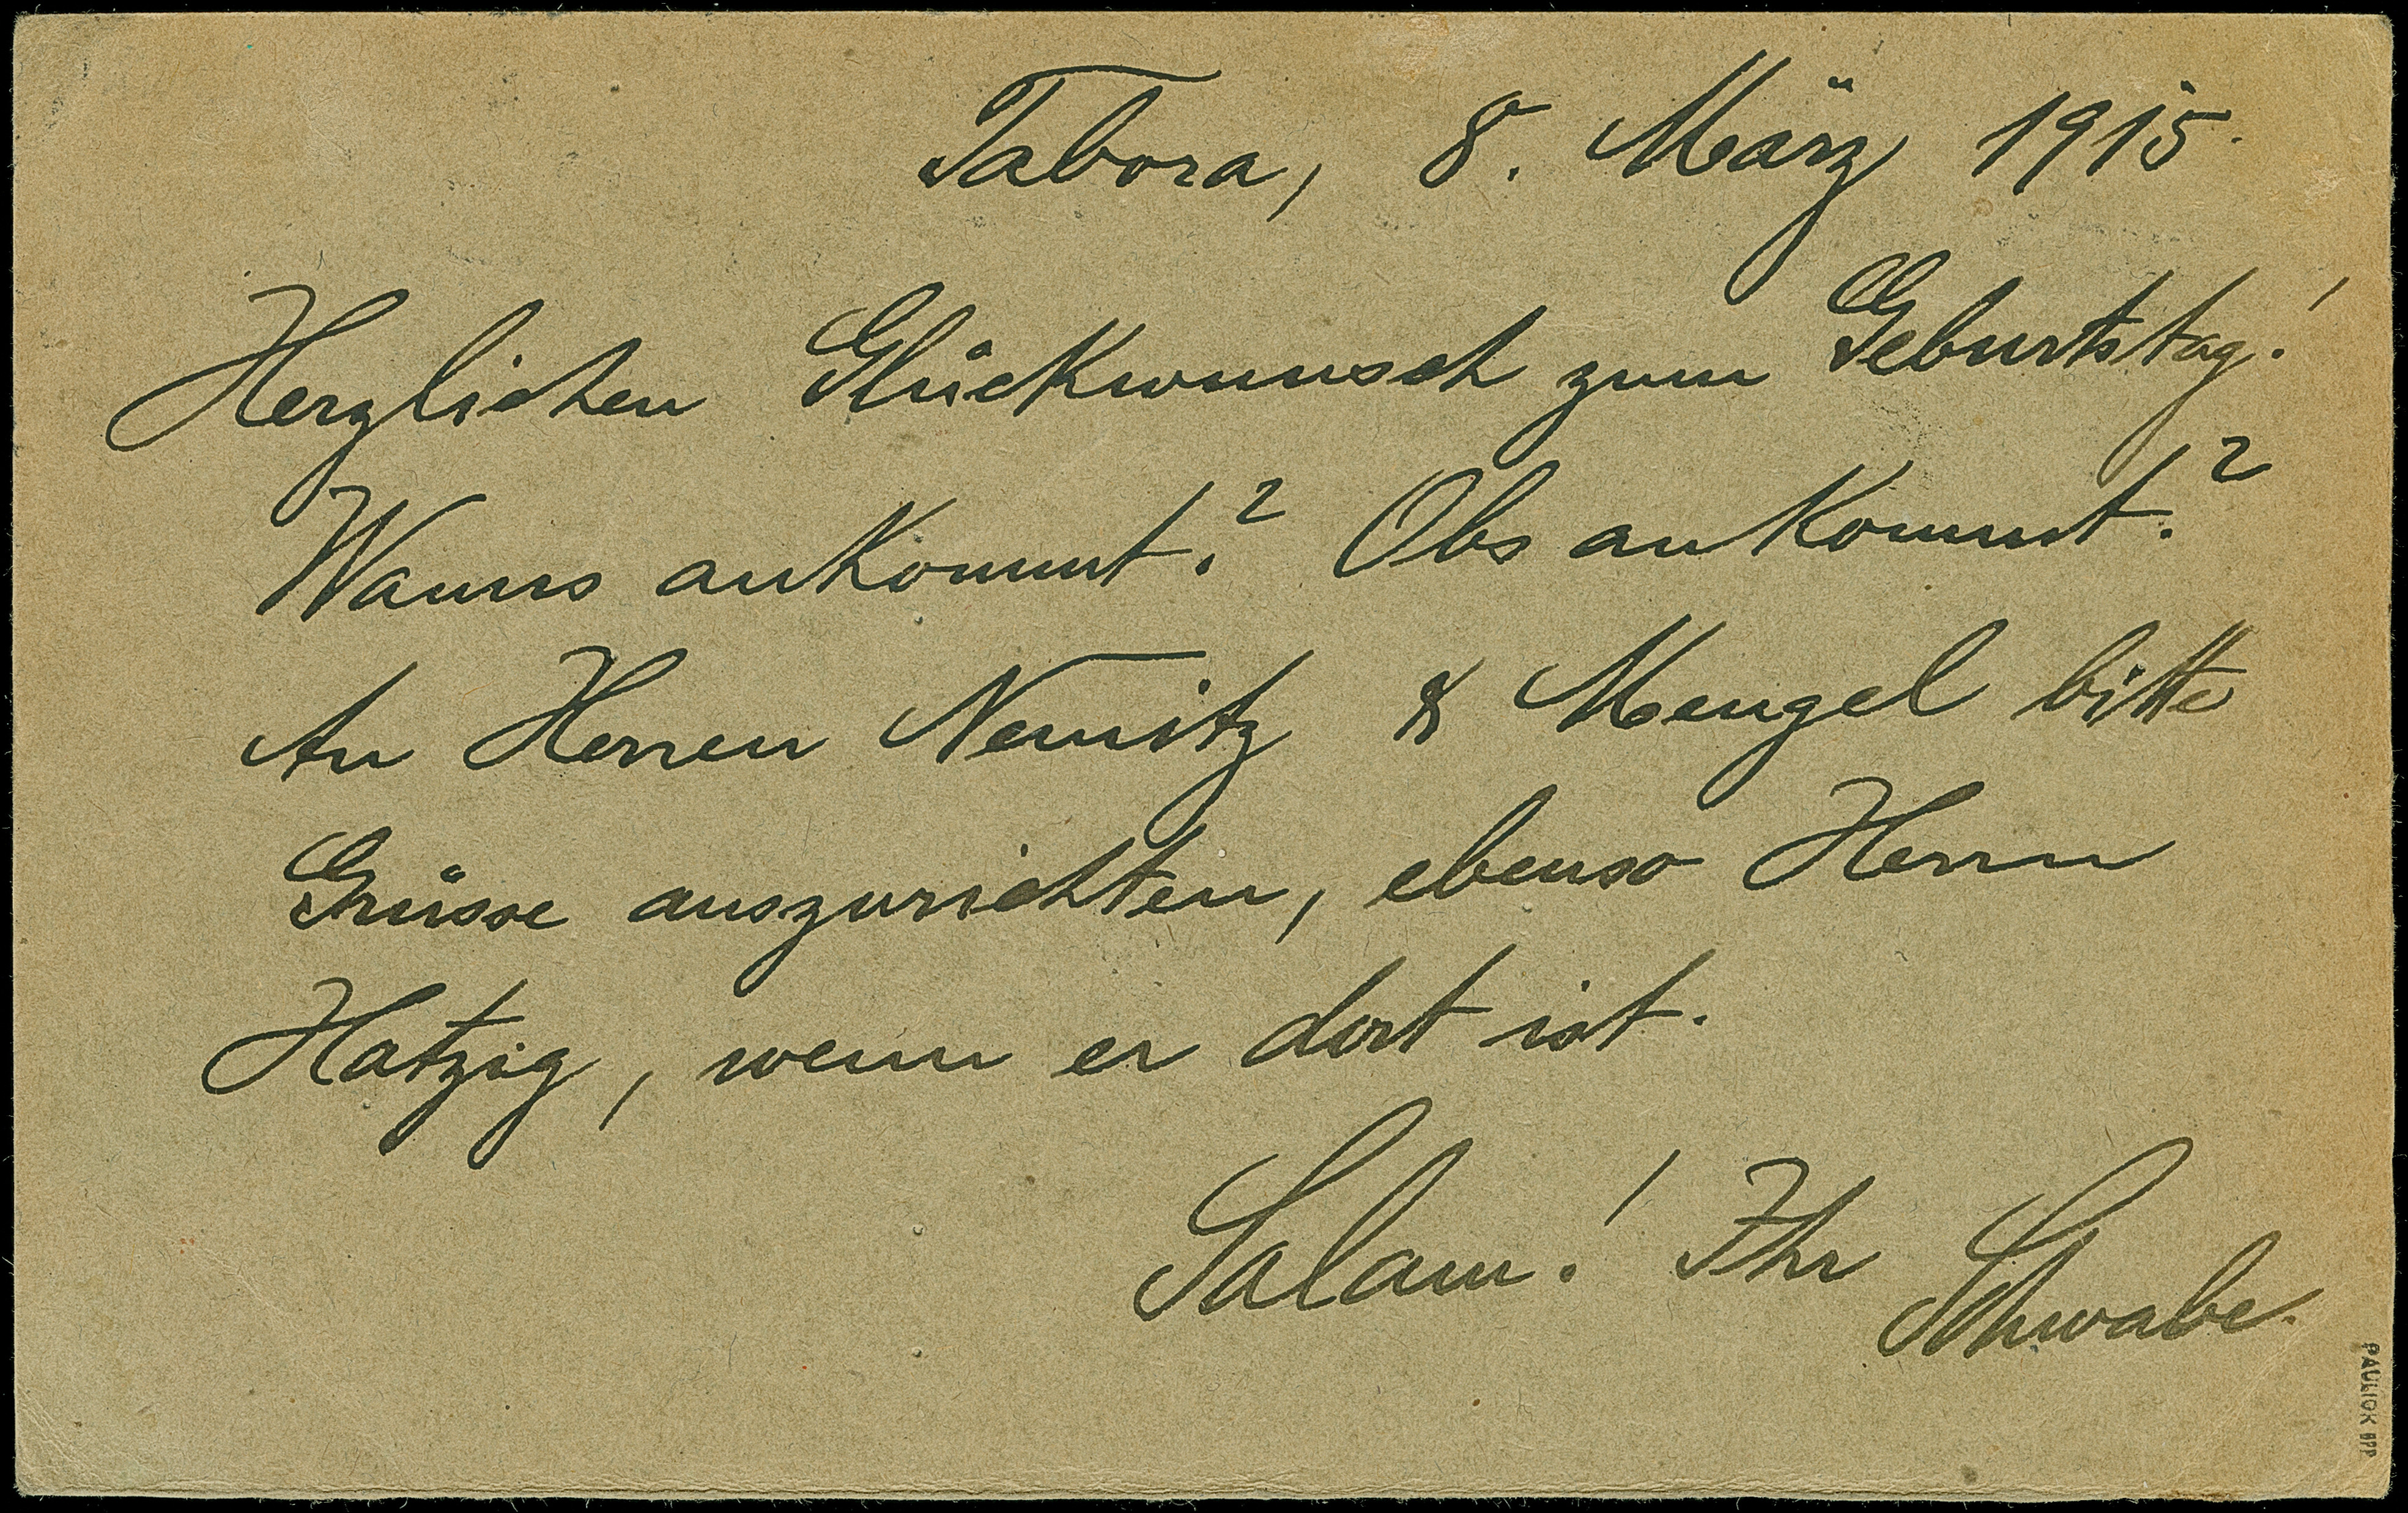 Tabora, 8. März 1915.
Herzlichen Glückwunsch zum Geburtstag!
Wanns ankommt? Obs ankommt?
An Herren Nemitz & Mengel bitte
Grüsse auszurichten, ebenso Herrn
Hatzig, wenn er dort ist.
Salam! Ihr
Schwabe.
PAULIGK BPP